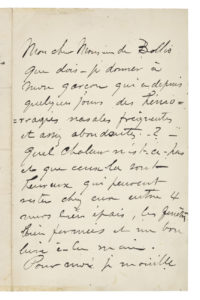 Mon cher Monsieur de Bellio
Que dois-je donner à
mon garçon qui a depuis
quelques jours des hémo-
rragies nasales fréquentes
et assez abondantes - ?
Quel chaleur n'est-ce-pas
et que ceux-là sont
heureux qui peuvent
rester chez eux entre 4
murs bien épais, les fenêtres
bien fermées et un bon
livre à la main.
Pour moi je mouille